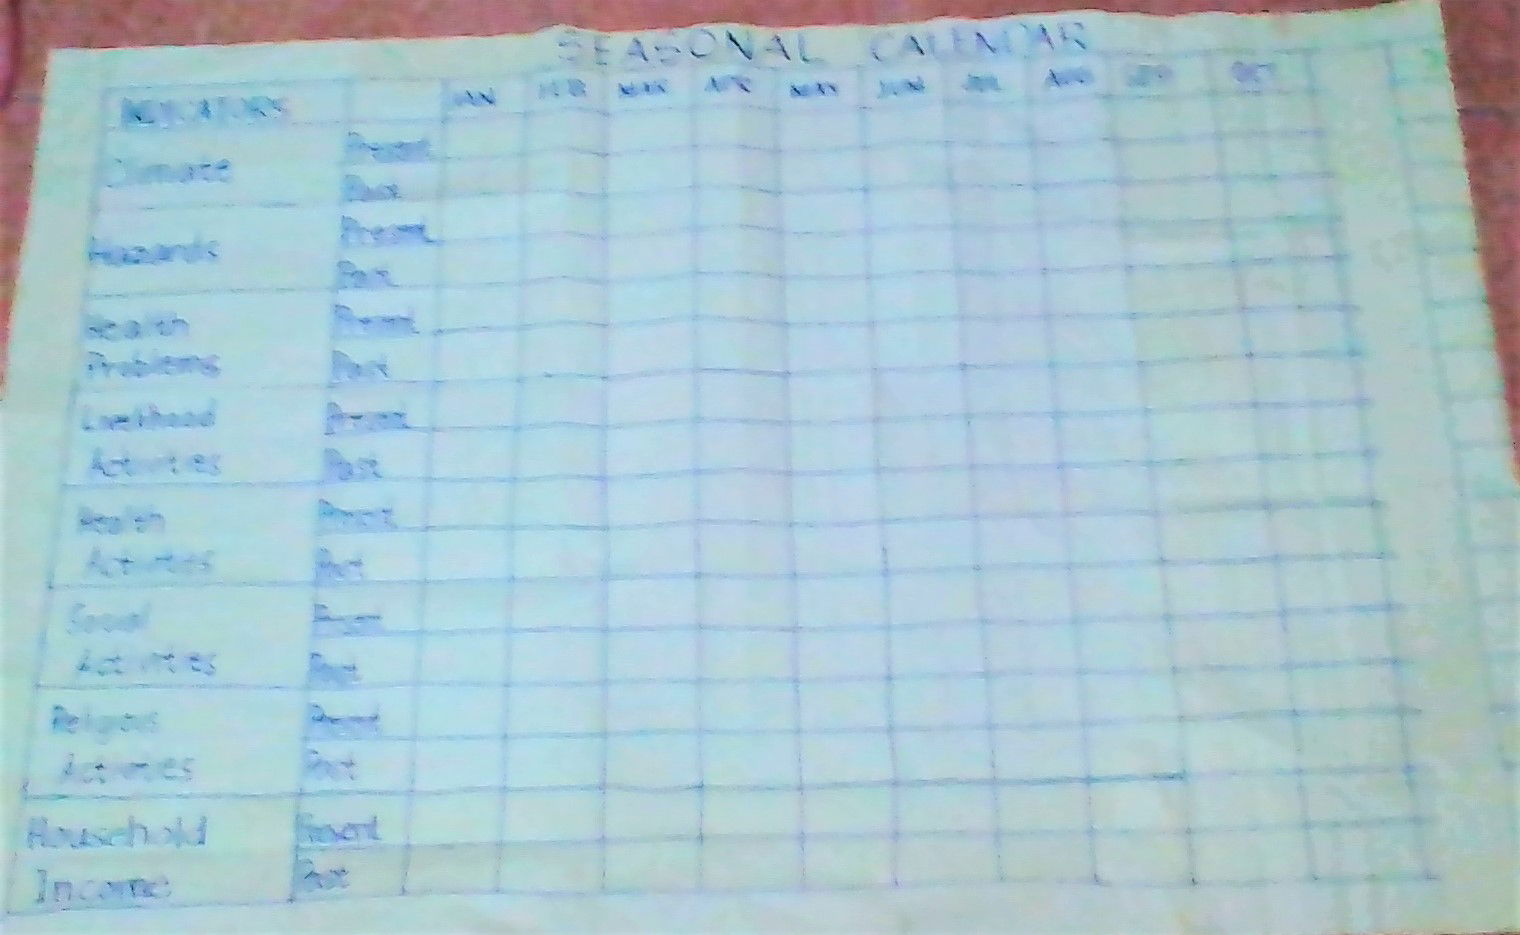 SEASONAL CALENDAR
INDICATORS JAN FEB MAR APR MAY JUN JUL AUG SEP OCT
Climate Present
Past
Hazards Present
Past
Health Present
Problems Past
Livelihood Present
Activities Past
Health Present
Activities Past
Social Present
Activities Past
Religious Present
Activities Past
Household Present
Income Past